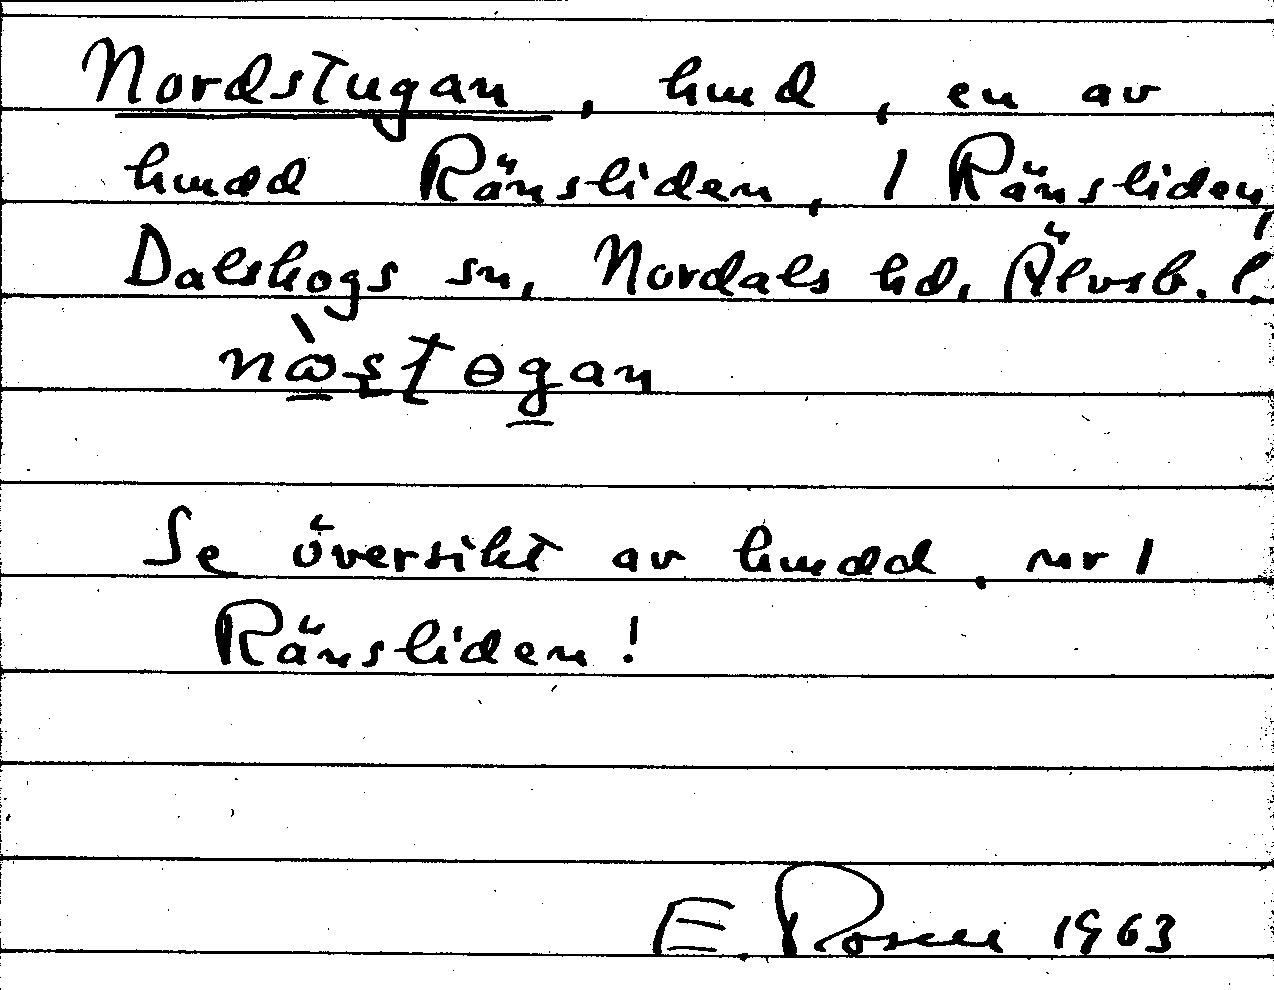 Nordstugan, hmd, en av
hmdd Ränsliden, 1 Ränsliden,
Dalskogs sn, Nordals hd, Älvsb. l.
Se översikt av hmdd. nr 1
Ränsliden!
E. Rosell 1963